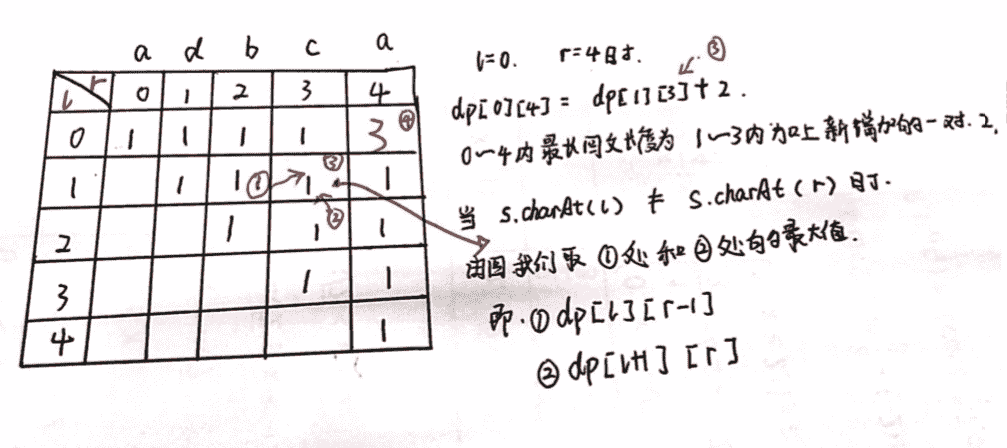 a d b c a
l r 0 1 2 3 4
0 1 1 1 1 3 ④
1 1 1 ① 1 ③ 1
2 1 1 ② 1
3 1 1
4 1
l=0. r=4时.
③
dp[0][4] = dp[1][3]+2.
0～4内最长回文长度为 1～3内加上新增加的一对. 2,
当 s.charAt(l) ≠ s.charAt(r) 时.
由图我们取 ①处和②处的最大值.
即.① dp[l][r-1]
② dp[l+1][r]